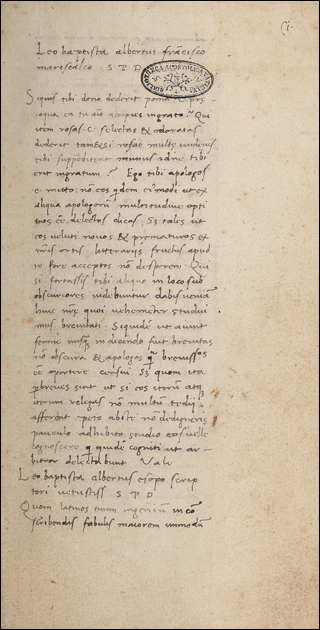 Leo baptista albertus francisco
marescalco S. P. D.
Siquis tibi dono dederit poma C pre-
coqua en tu ne aceupes ingrato? Qui
item rosas C. selectas & odoratas
dederit tametsi rosae multe
tibi suppeditent tibi
erit ingratum? Ego tibi apologos
C mitto: nō eos qdem ut ex
aliqua apologorū multitudine opti
mos eē delectos dicas. Sz tales ut
eos veluti novos & prematuros ex
nris ortis literarijs fructus apud
te fore acceptos nō desperem. Qui
si fortassis tibi aliquo in loco sub
obscuriores videbuntur dabis veniā
huic nrę quoi vehementer studui
mus brevitati. Siquidē ut aiunt
ferme nusq in dicendo fuit brevitas
nō obscura & apologos q brevissos
eē oportere censui. Sz quom ita
pbreves sunt ut si eos iterū atq
iterum relegas nō multū tedij
afferent peto abs te nō dedigneris
paululo adhibito studio eos velle
cognoscere q quidē cogniti ut ar-
bitror delectabunt Vale
Leo baptista albertus esopo scrip
tori vetustiss. S P D
Quom latinos tuum ingenium in cō
scribendis fabulis maiorem inmodū